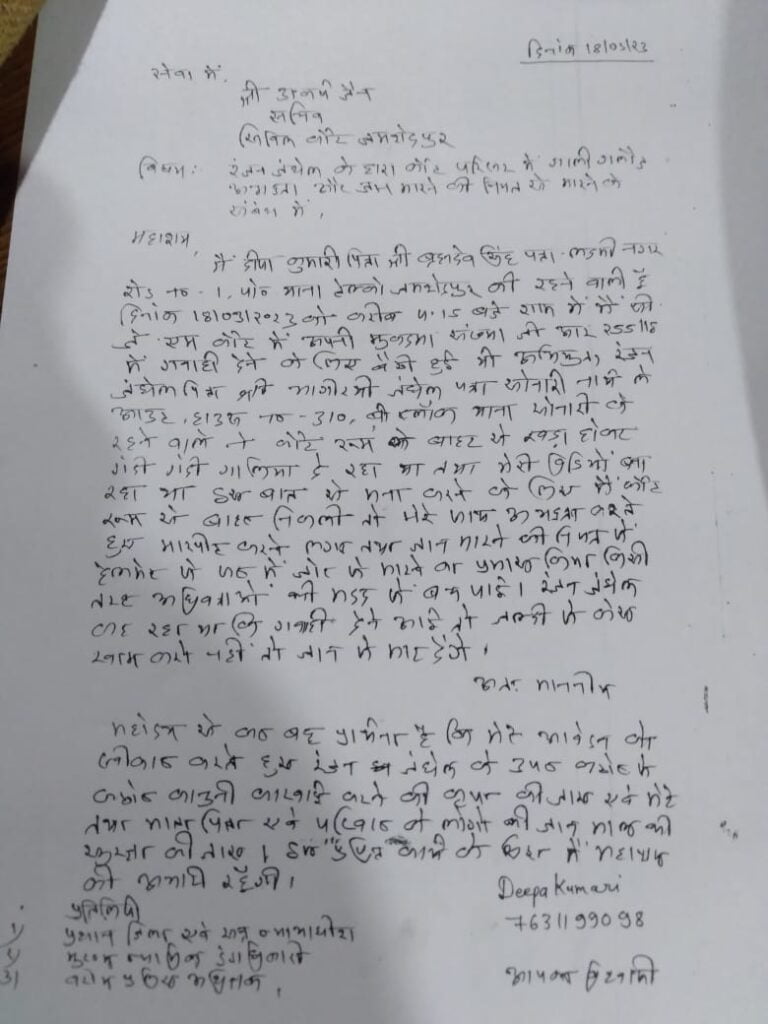 दिनांक 18/03/23
सेवा में,
श्री अजय जैन
सचिव
सिविल कोर्ट जमशेदपुर
विषय: रंजन जंघेल के द्वारा कोर्ट परिसर में गाली गलौज
अभद्रता और जान मारने की नियत से मारने के
संबंध में,
महाशय,
मैं दीपा कुमारी पिता श्री ब्रह्मदेव सिंह पता लक्ष्मी नगर
रोड न० - 1, पो० थाना टेल्को जमशेदपुर की रहने वाली हूँ
दिनांक 18/03/2023 को करीब 4:15 बजे शाम में मैं
जे एम कोर्ट में अपनी मुकदमा संख्या जी आर 255/18
में गवाही देने के लिए बैठी हुई थी अभियुक्त रंजन
जंघेल पिता श्री भागीरथी जंघेल पता सोनारी
आउट, हाउस न० - 310, बी ब्लॉक थाना सोनारी के
रहने वाले ने कोर्ट रूम के बाहर से खड़ा होकर
गंदी गंदी गालिया दे रहा था तथा मेरी विडियो बना
रहा था इस बात से मना करने के लिए मैं कोर्ट
रूम से बाहर निकली तो मेरे साथ अभद्रता करते
हुए मारपीट करने लगा तथा जान मारने की नियत से
हेलमेट से जोर से मारने का प्रयास किया किसी
तरह अधिवक्ताओं की मदद से बच पाई। रंजन जंघेल
कह रहा था कि गवाही देने आई तो जल्दी से केस
खत्म करो नहीं तो जान से मार देंगे।
अतः माननीय
महोदय से करबद्ध प्रार्थना है कि मेरे आवेदन को
स्वीकार करते हुए रंजन जंघेल के उपर कठोर से
कठोर कानुनी कारवाई करने की कृपा की जाए एवं मेरे
तथा माता पिता एवं परिवार के लोगों की जान माल की
सुरक्षा की जाए। इस कार्य के लिए मैं महाशय
की आभारी रहूँगी।
Deepa Kumari
7631199098
प्रतिलिपी
1) प्रधान जिला एवं सत्र न्यायाधीश
2) मुख्य न्यायिक दंडाधिकारी
3) वरीय पुलिस अधिक्षक,
आपका विश्वासी